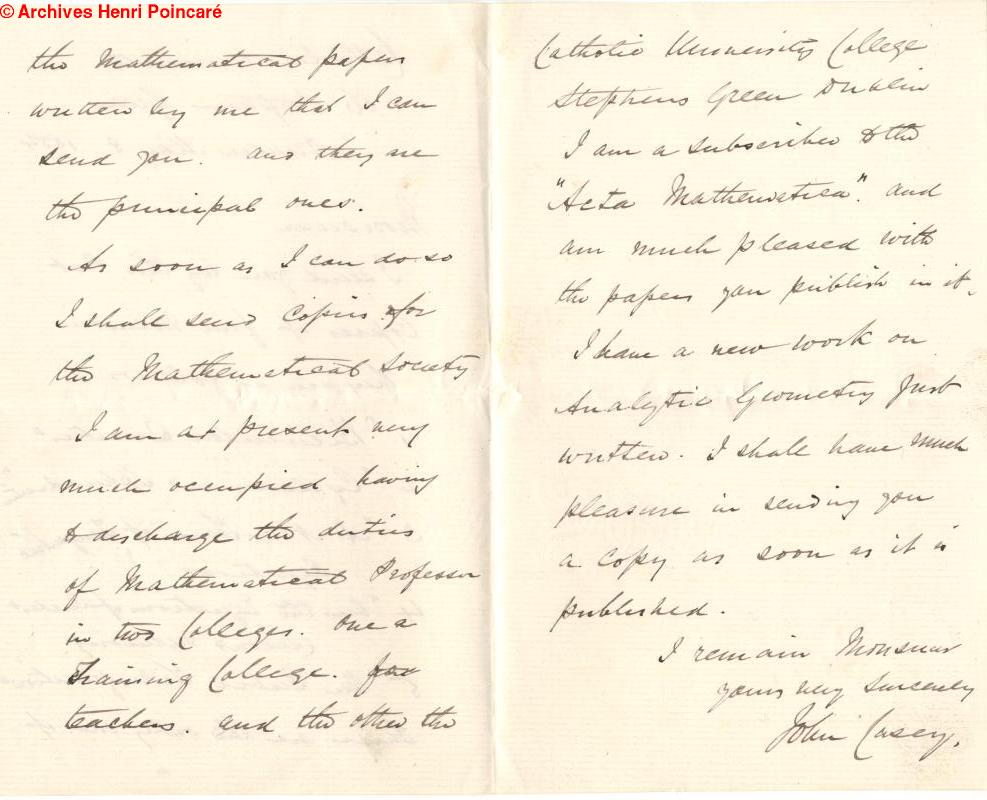 © Archives Henri Poincaré
the Mathematical papers
written by me that I can
send you. and they are
the principal ones.
As soon as I can do so
I shall send Copies for
the Mathematical Society
I am at present very
much occupied having
to discharge the duties
of Mathematical Professor
in two Colleges. One a
Training College. for
teachers. and the other the
Catholic University College
Stephens Green Dublin
I am a subscriber to the
"Acta Mathematica". and
am much pleased with
the papers you publish in it.
I have a new work on
Analytic Geometry Just
written. I shall have much
pleasure in sending you
a copy as soon as it is
published.
I remain Monsieur
yours very Sincerely
John Casey.